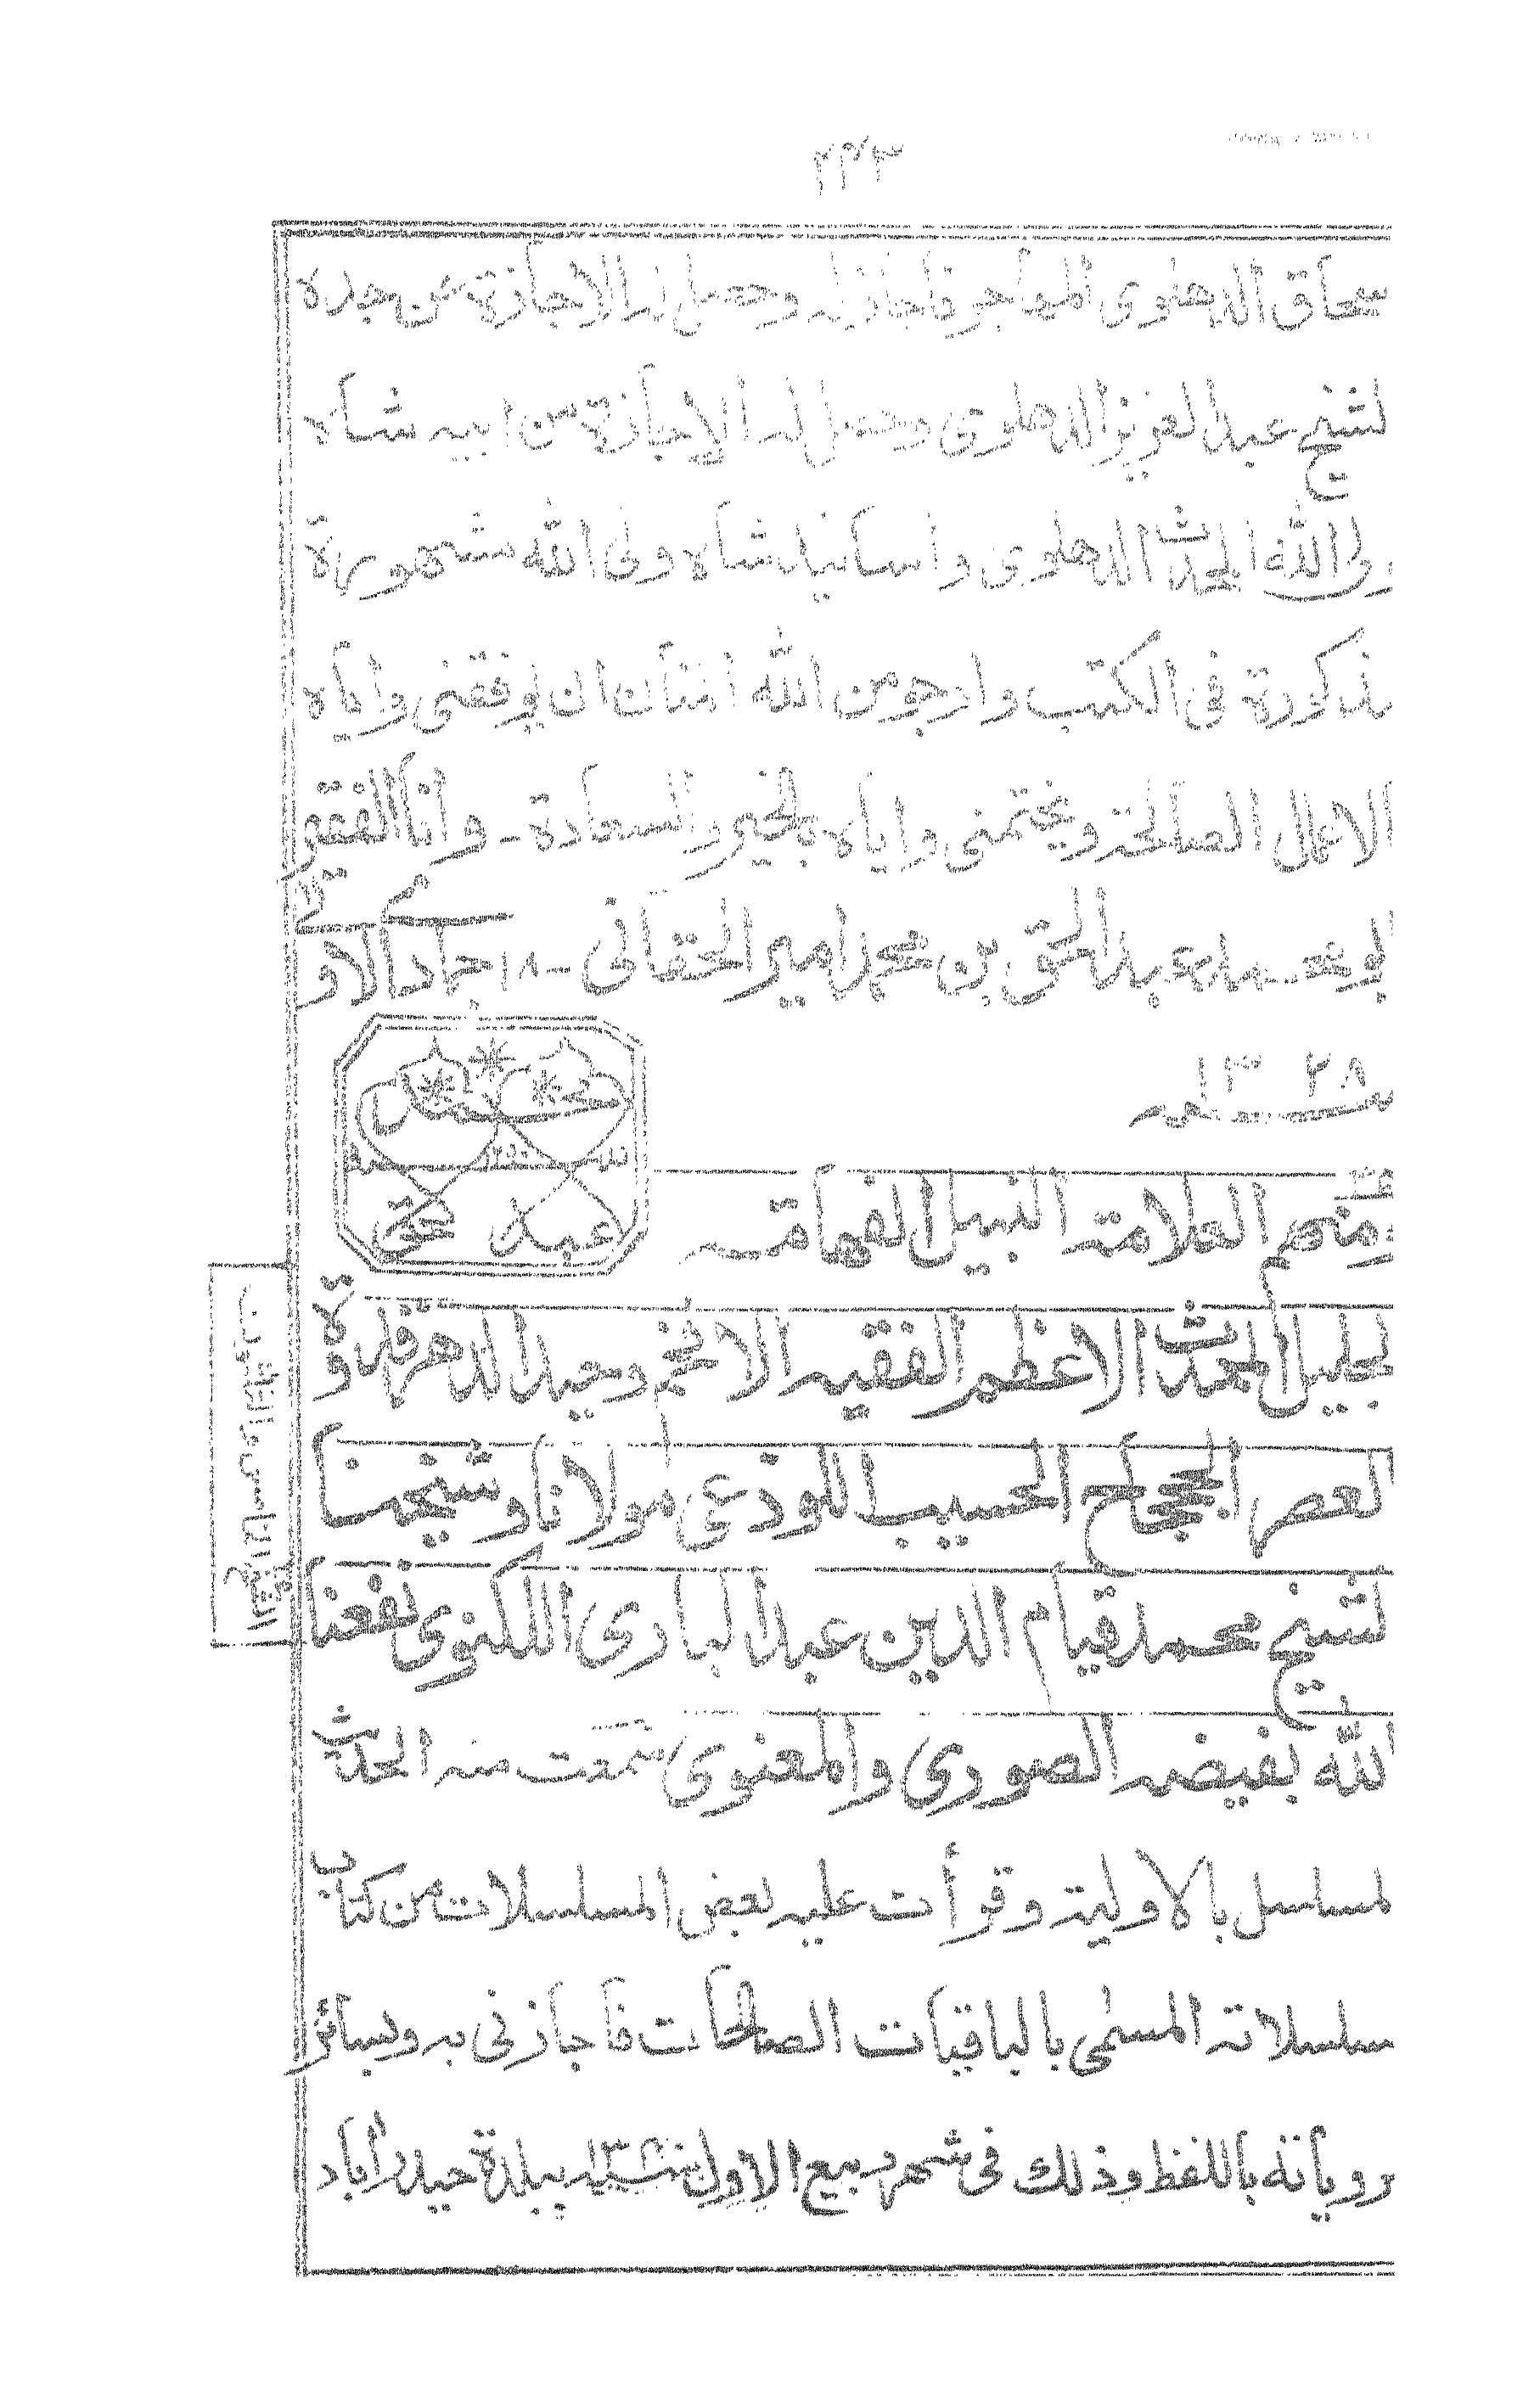 ٢٣٣
سحاق الدهلوى المهاجر فاجاز له وحصل له الاجازة عن جده
لشيخ عبد العزيز الدهلوى وحصل له الاجازة من ابيه شاه
لى الله المحدث الدهلوى واسانيد شاه ولى الله مشهورة
ذكورة فى الكتب وارجو من الله المنان ان يوفقنى واياه
الاعمال الصالحة ويختمنى واياه بالخير والسعادة - وانا الفقير
عبد الحق بن محمد امير الحقانى - ١٨ جماد الاو
١٣٢٨
محمد عبد الحق
منهم العلامة النبيل الفهامة
لجليل المحدث الاعظم الفقيه الافخم وحيد الدهر قدوة
لعصر الجحجاح الحسيب اللوذعى مولانا وشيخنا
لشيخ محمد قيام الدين عبد البارى اللكنوى نفعنا
الشيخ الخامس والثلثون
لله بفيضه الصورى والمعنوى سمعت منه الحديث
لمسلسل بالاولية وقرأت عليه بعض المسلسلات من كتاب
سلسلاته المسمى بالباقيات الصالحات فاجازنى به وبسائر
روياته باللفظ وذلك فى شهر ربيع الاول ببلدة حيدراباد